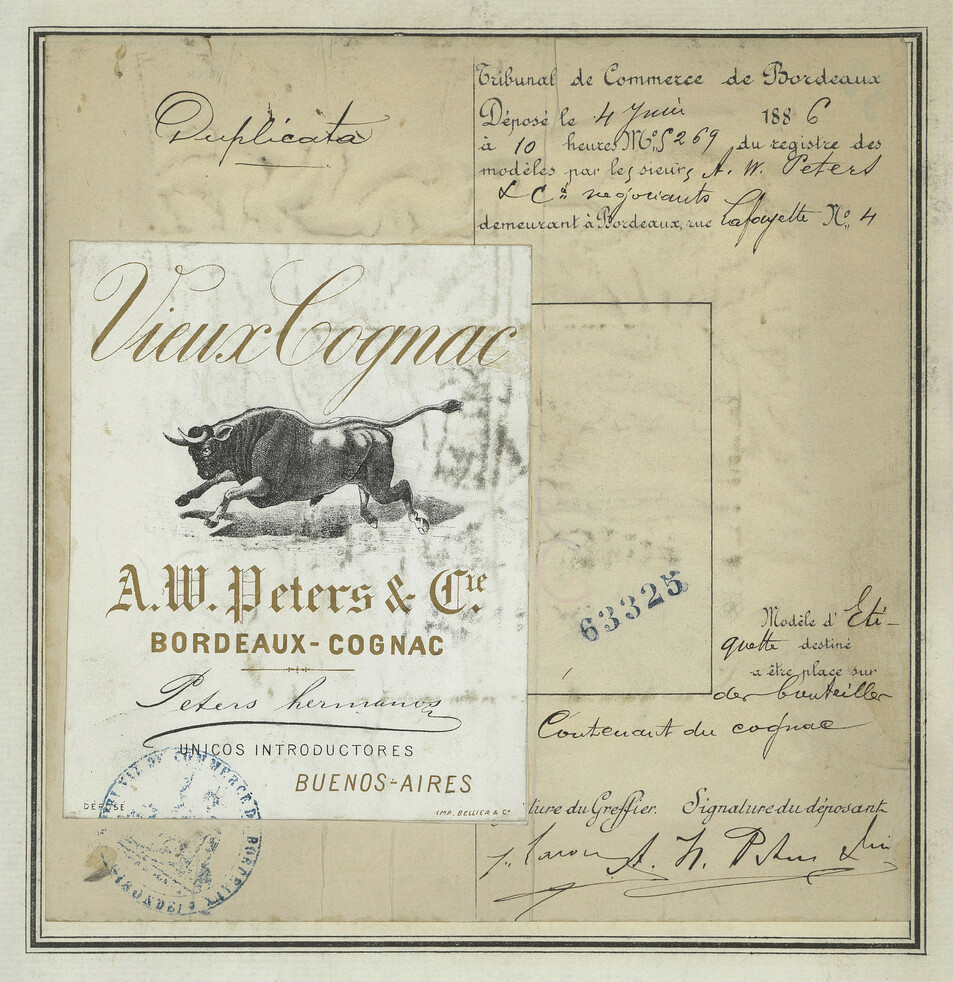 Duplicata
Tribunal de Commerce de Bordeaux
Déposé le 4 Juin 1886
à 10 heures Nº 5269 du registre des
modèles par les sieurs A. W. Peters
& Cie négociants
demeurant à Bordeaux, rue Lafayette Nº 4
Vieux Cognac
A.W. Peters & Cie.
BORDEAUX-COGNAC
Peters hermanos
UNICOS INTRODUCTORES
BUENOS-AIRES
DÉPOSÉ
IMP. BELLIER & Cº
63325
Modèle d'Eti-
quette destiné
a être place sur
des bouteilles
Contenant du cognac
ture du Greffier. Signature du déposant
A. W. Peters
DE COMMERCE DE BORDEAUX